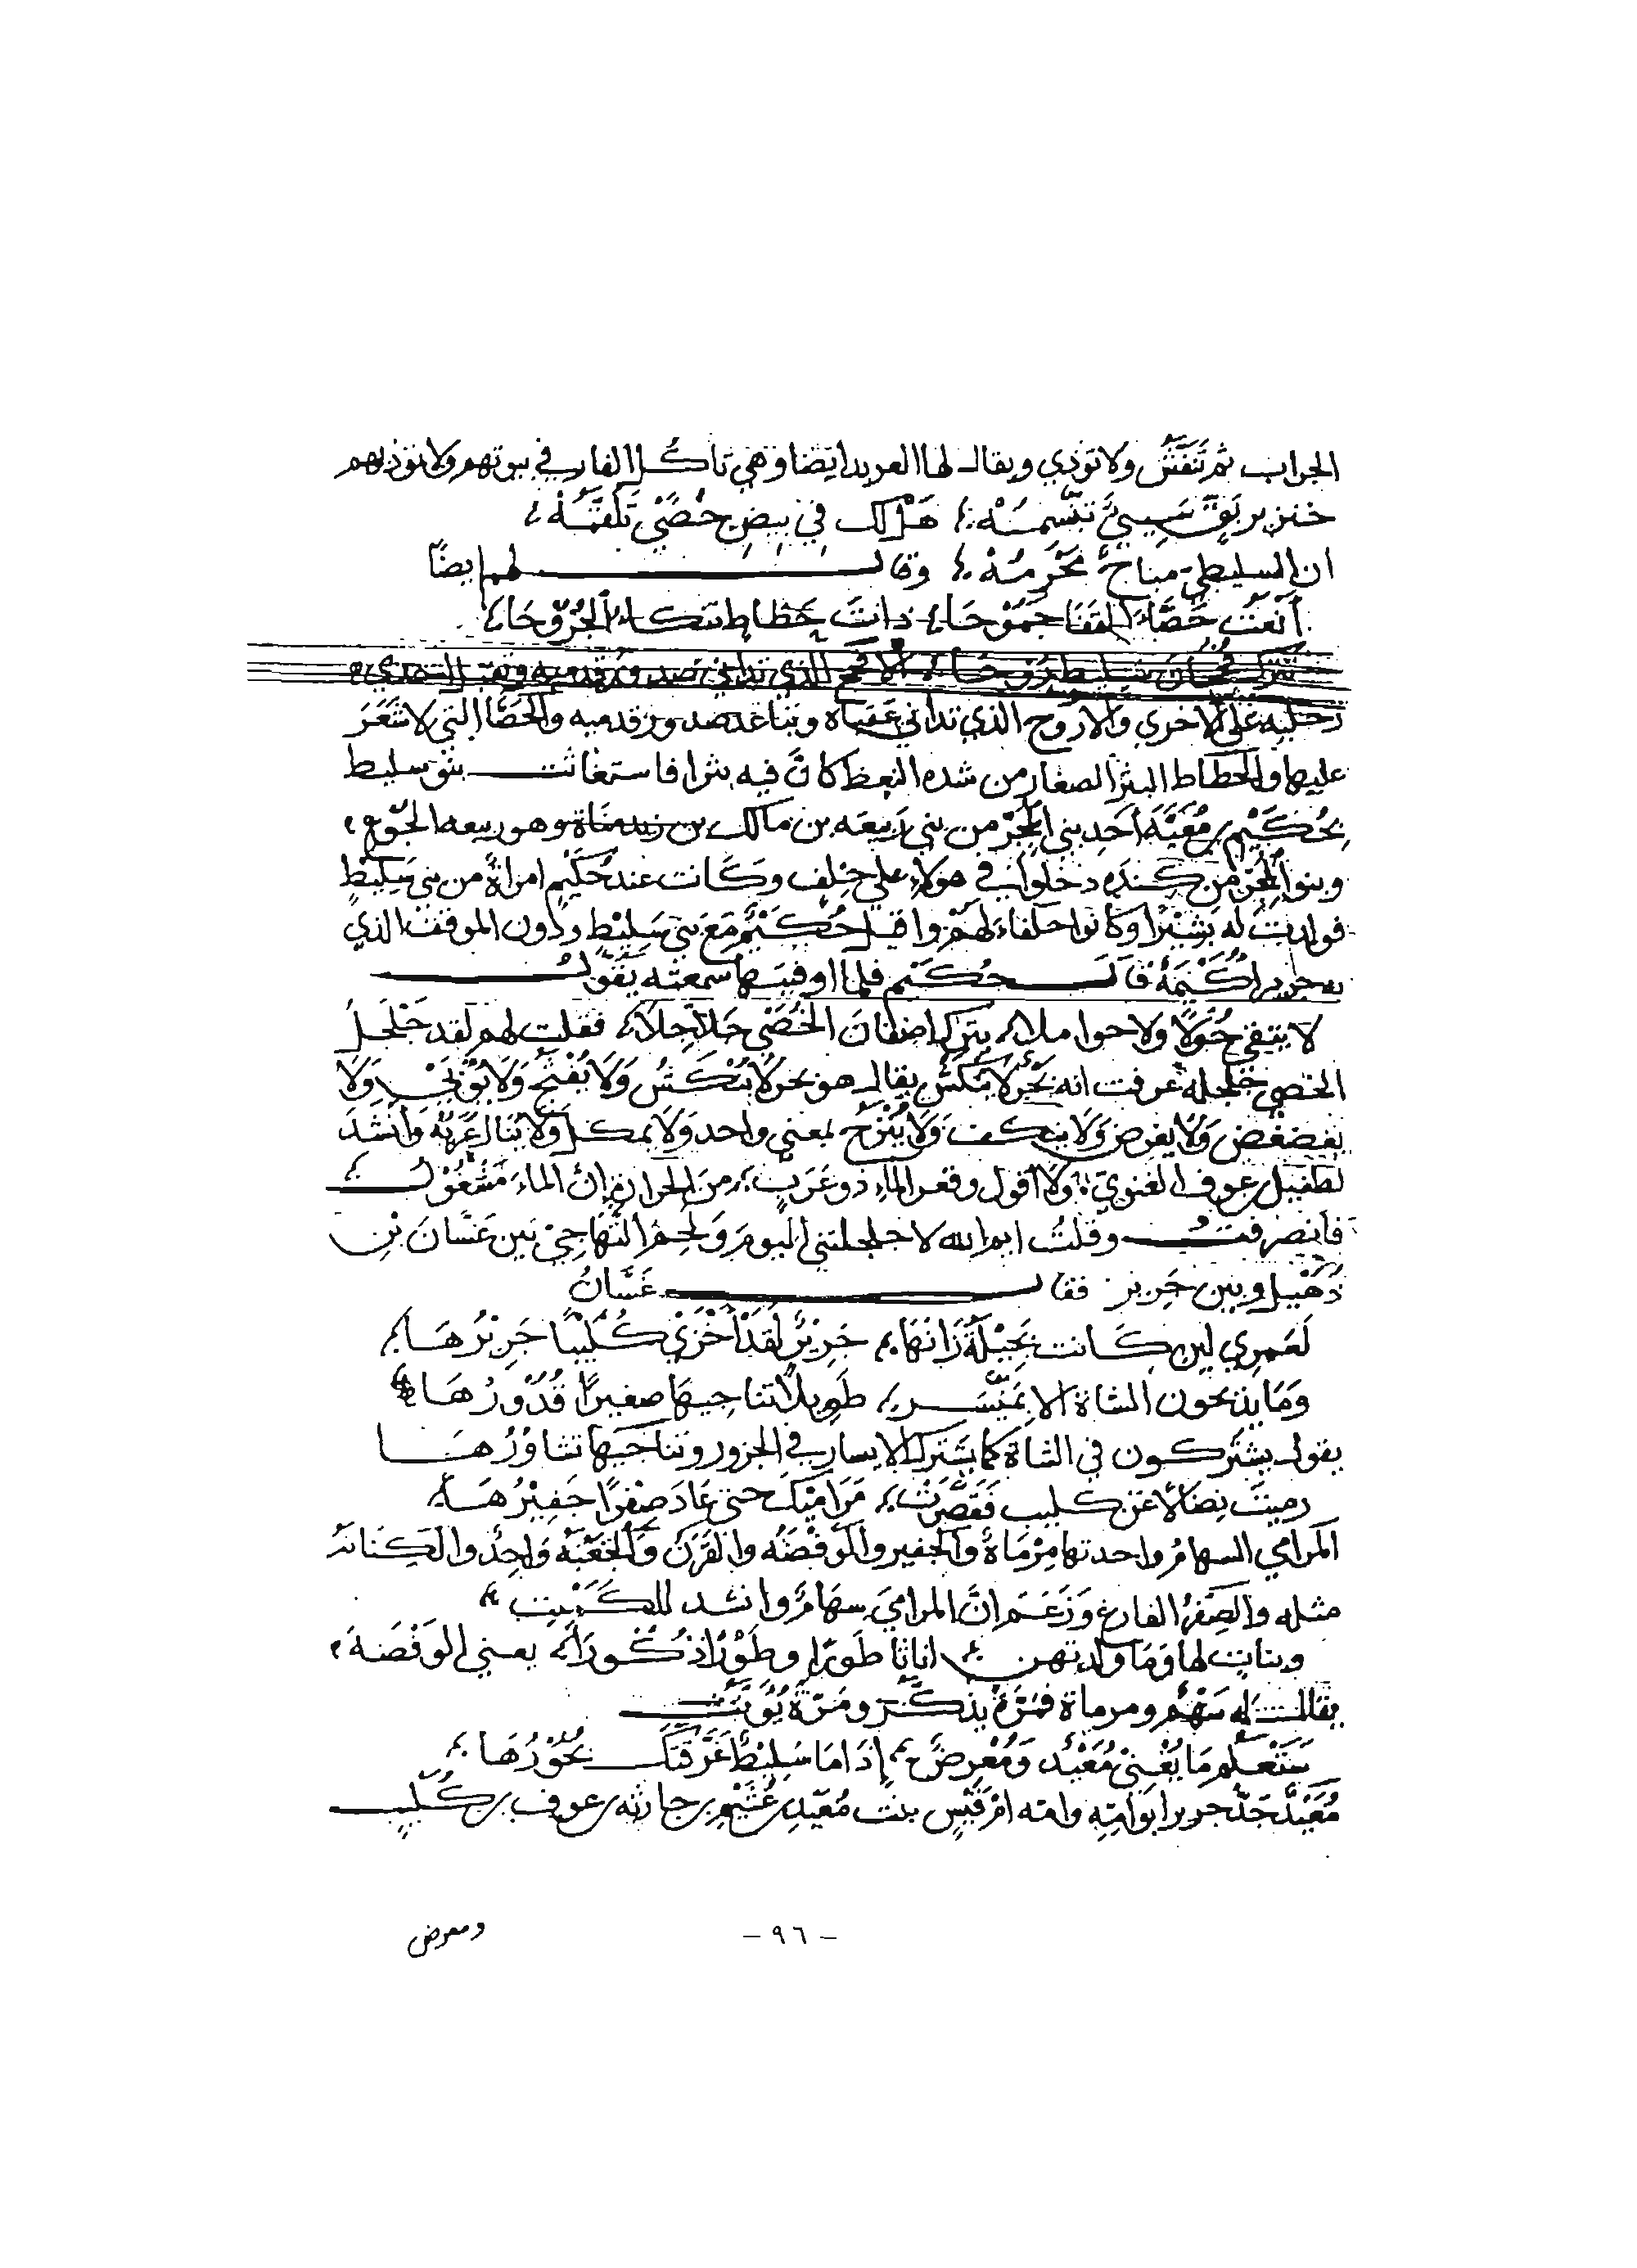 الجراب ثم تنفش ولا توذي ويقال لها العربد ايضا وهي تاكل الفار في بيوتهم ولا توذيهم
هل لك في بيض خصي تلقمه
ان السليطي مباح محرمه وقال لهم ايضًا
أنعت حصاء القفا جموحا ذات حطاط تنكا الجروحا
تترك سليط روحا الافحج الذي تدانى صدور قدميه وتقبل
رجليه على الاخري والاروح الذي تدانى عقباه ويتباعد صدور قدميه والحصا التي لا شعر
عليها والحطاط البثر الصغار من شده النعظ كان فيه بثرا فاستغاثت بنو سليط
بحكيم بن معية أحد بني المجر من بني ربيعه بن مالك بن زيد مناة وهو ربيعه الجوع
وبنو المجر من كنده دخلوا في هولاء على حلف وكانت عند حكيم امراة من بني سليط
فولدت له بشيرا وكانوا حلفاء لهم واقبل حكيم مع بني سليط ودون الموقف الذي
به جرير اكيمة قال حكيم فلما اوفيتها سمعته يقول
لا يتقي حولا ولا حواملا يترك اصفان الخصى جلاجلا فقلت لهم لقد جلجل
الخصي جلجله عرفت انه بحر لا ينكش يقال هو بحر لا ينكش ولا يفثج ولا يوبى ولا
يغضغض ولا يغرض ولا ينكف ولا ينزح بمعني واحد ولا يمكل ولا ينال عربه وانشد
لطفيل بن عوف الغنوي ولا أقول وقعر الماء ذو عرب من الحرارة إن الماء مشغول
فانصرفت وقلت ايم الله لا جلجلتني اليوم ولحم التهاجي بين غسان بن
ذهيل وبين جرير فقال غسان
لعمري لين كانت بجيلة زانها جرير لقد أخزي كليبا جريرها
وما يذبحون الشاة الا بميسر طويلا تناجيها صغيرا قدورها
يقول يشتركون في الشاة كما يشترك الايسار في الجزور وتناجيها تشاورها
رميت نضالا عن كليب فقصرت مراميك حتى عاد صفرا جفيرها
المرامي السهام واحدتها مرماة والجفير والوفضه والقرن والجعبه واحد والكنانه
مثله والصفر الفارغ وزعم ان المرامي سهام وانشد للكميت
وبنات لها وما ولدتهن اناثا طورا وطورا ذكورا يعني الوفضة
يقال له سهم ومرماة فمرة يذكر ومرة يونث
ستعلم ما يغني معيد ومعرض إذا ما سليط غرقتك بحورها
معيد جد جرير ابو امه وامه ام قيس بنت معيد بن عثيم بن حارثه بن عوف بن كليب
- ٩٦ -
ومعرض